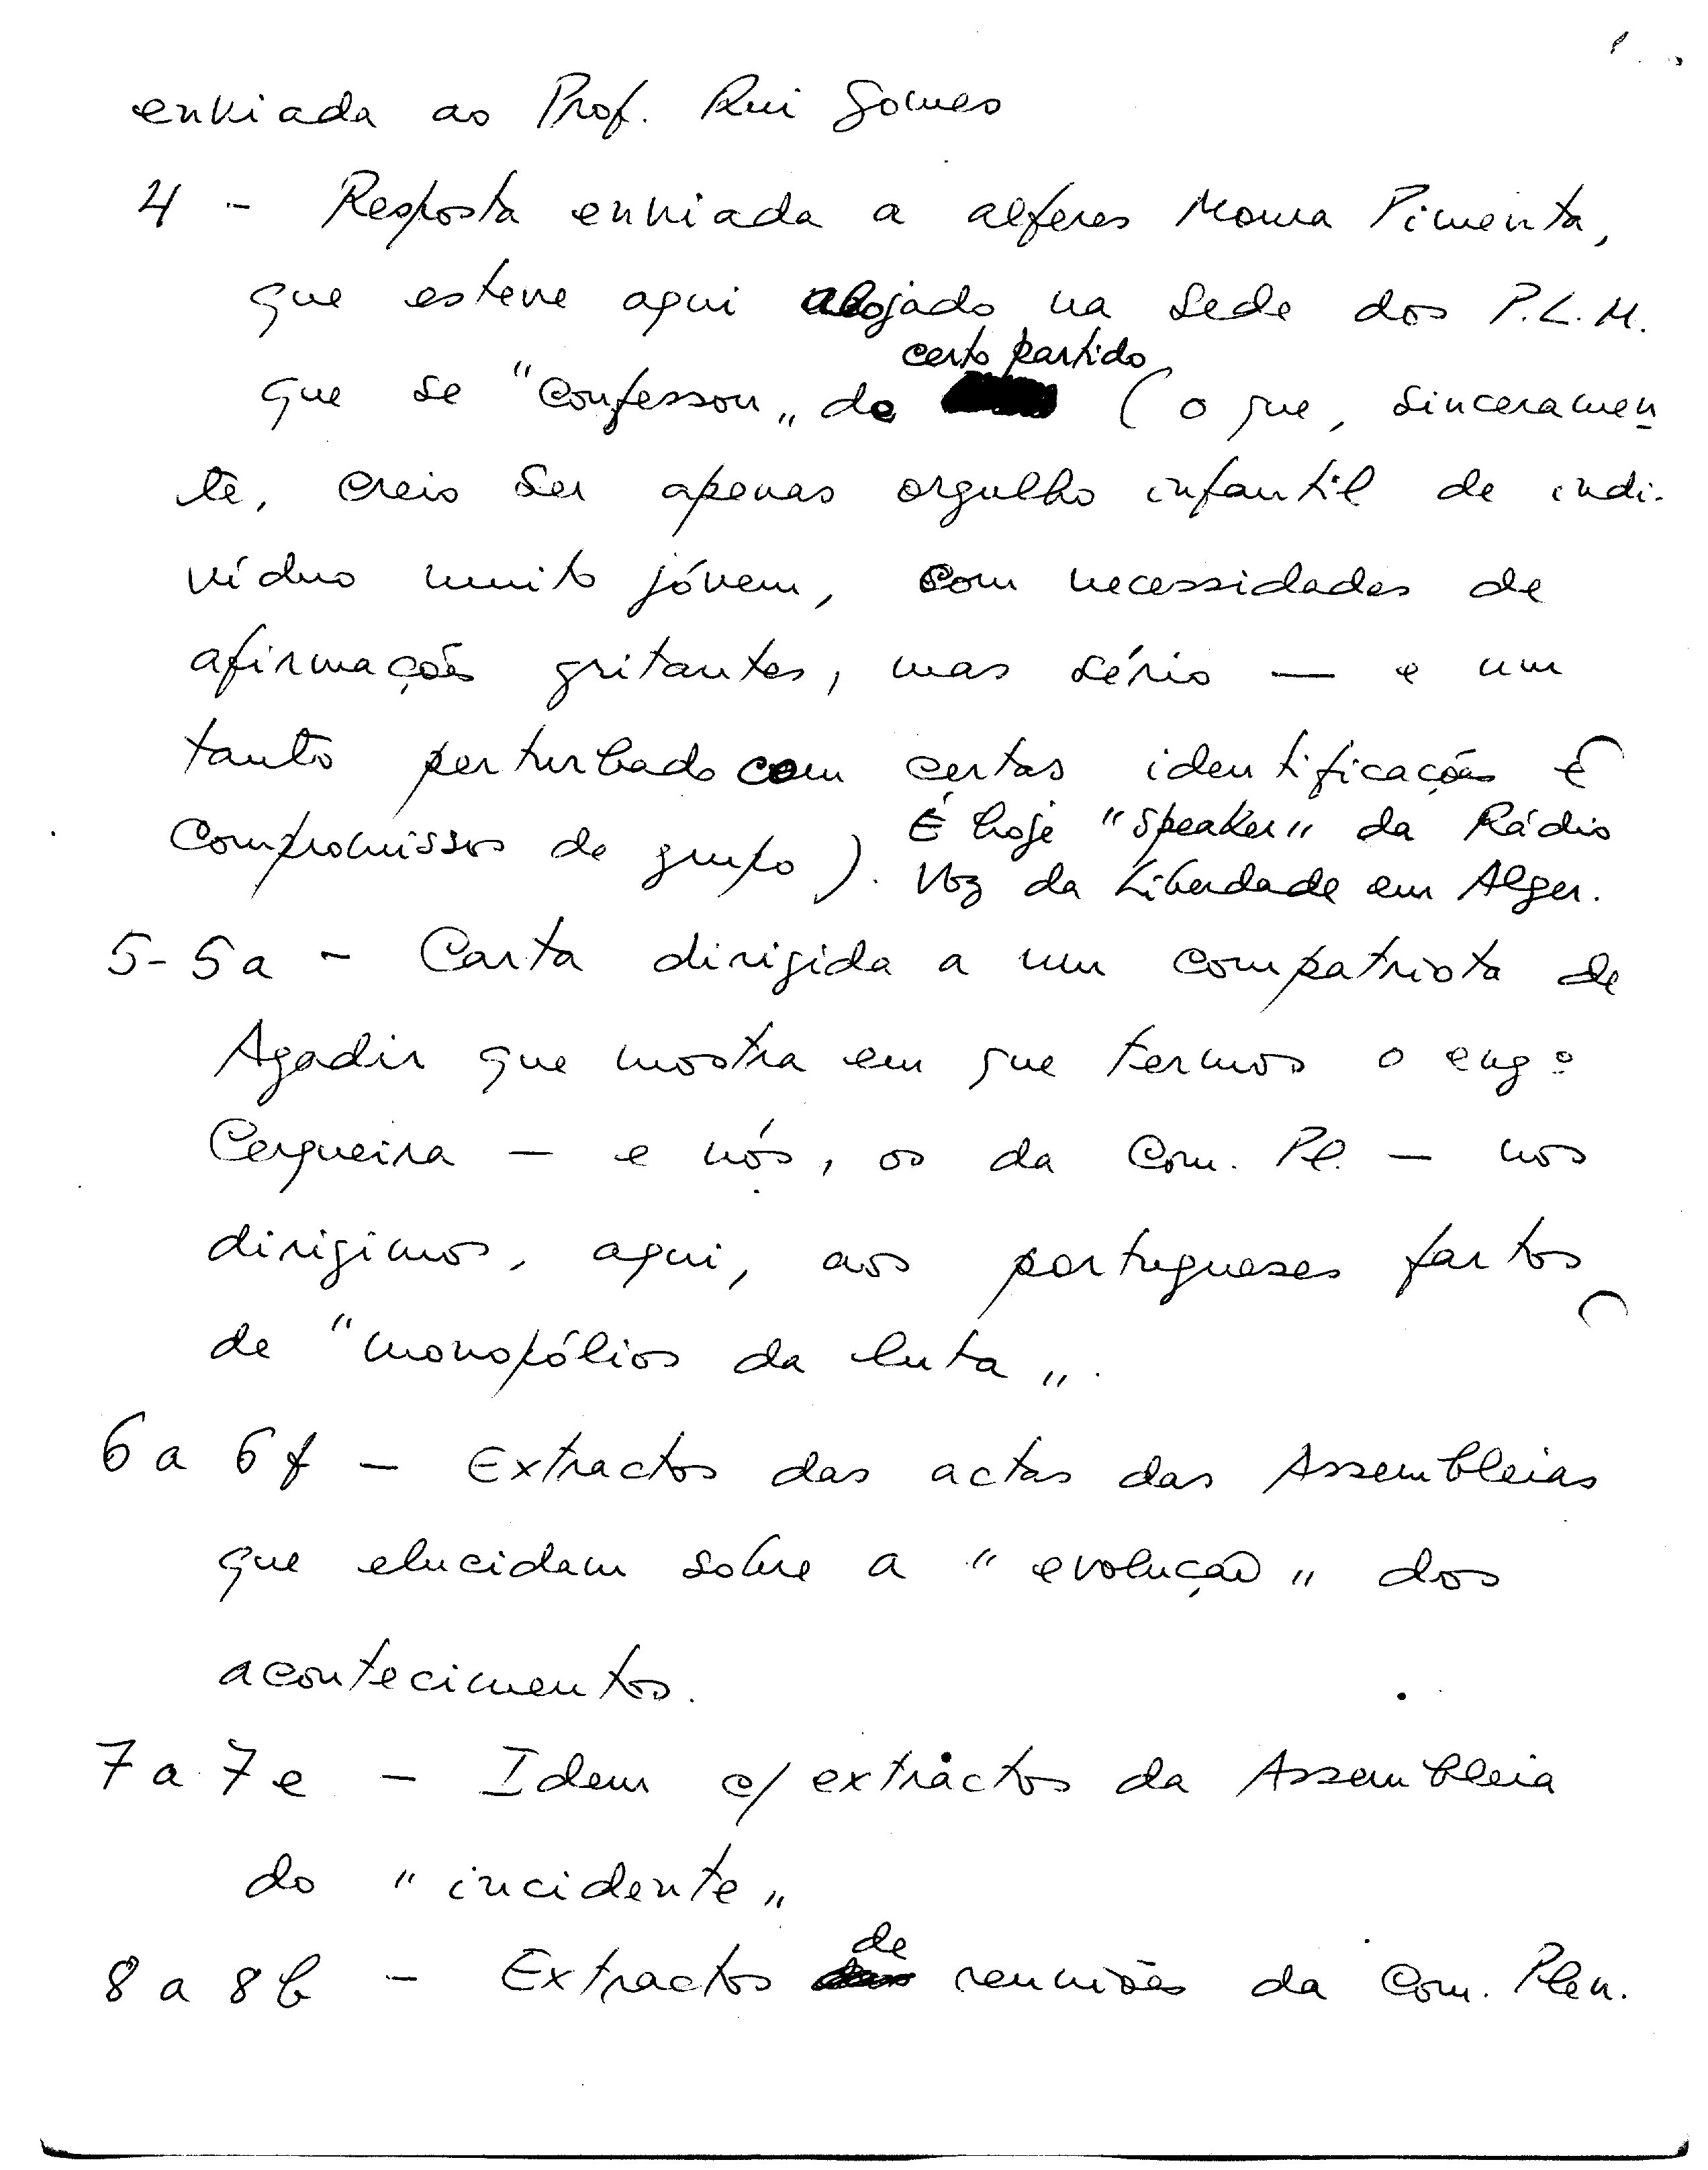 enviada ao Prof. Rui Gomes
4 - Resposta enviada a alferes Moura Pimenta,
que esteve aqui alojado na sede dos P.L.M.
certo partido
que se "confessou„ do (o que, sinceramen-
te, creio ser apenas orgulho infantil de indi-
víduo muito jóvem, com necessidades de
afirmações gritantes, mas sério — e um
tanto perturbado com certas identificações e
compromissos de grupo). É hoje "speaker" da Rádio
Voz da Liberdade em Alger.
5-5a - Carta dirigida a um compatriota de
Agadir que mostra em que termos o engº
Cerqueira — e nós, os da Com. Pl. — nos
dirigimos, aqui, aos portugueses fartos
de "monopólios da luta„.
6a 6f - Extractos das actas das Assembleias
que elucidam sobre a "evolução„ dos
acontecimentos.
7a 7e - Idem c/ extractos da Assembleia
do "incidente„
de
8a 8b - Extractos reuniões da Com. Plen.